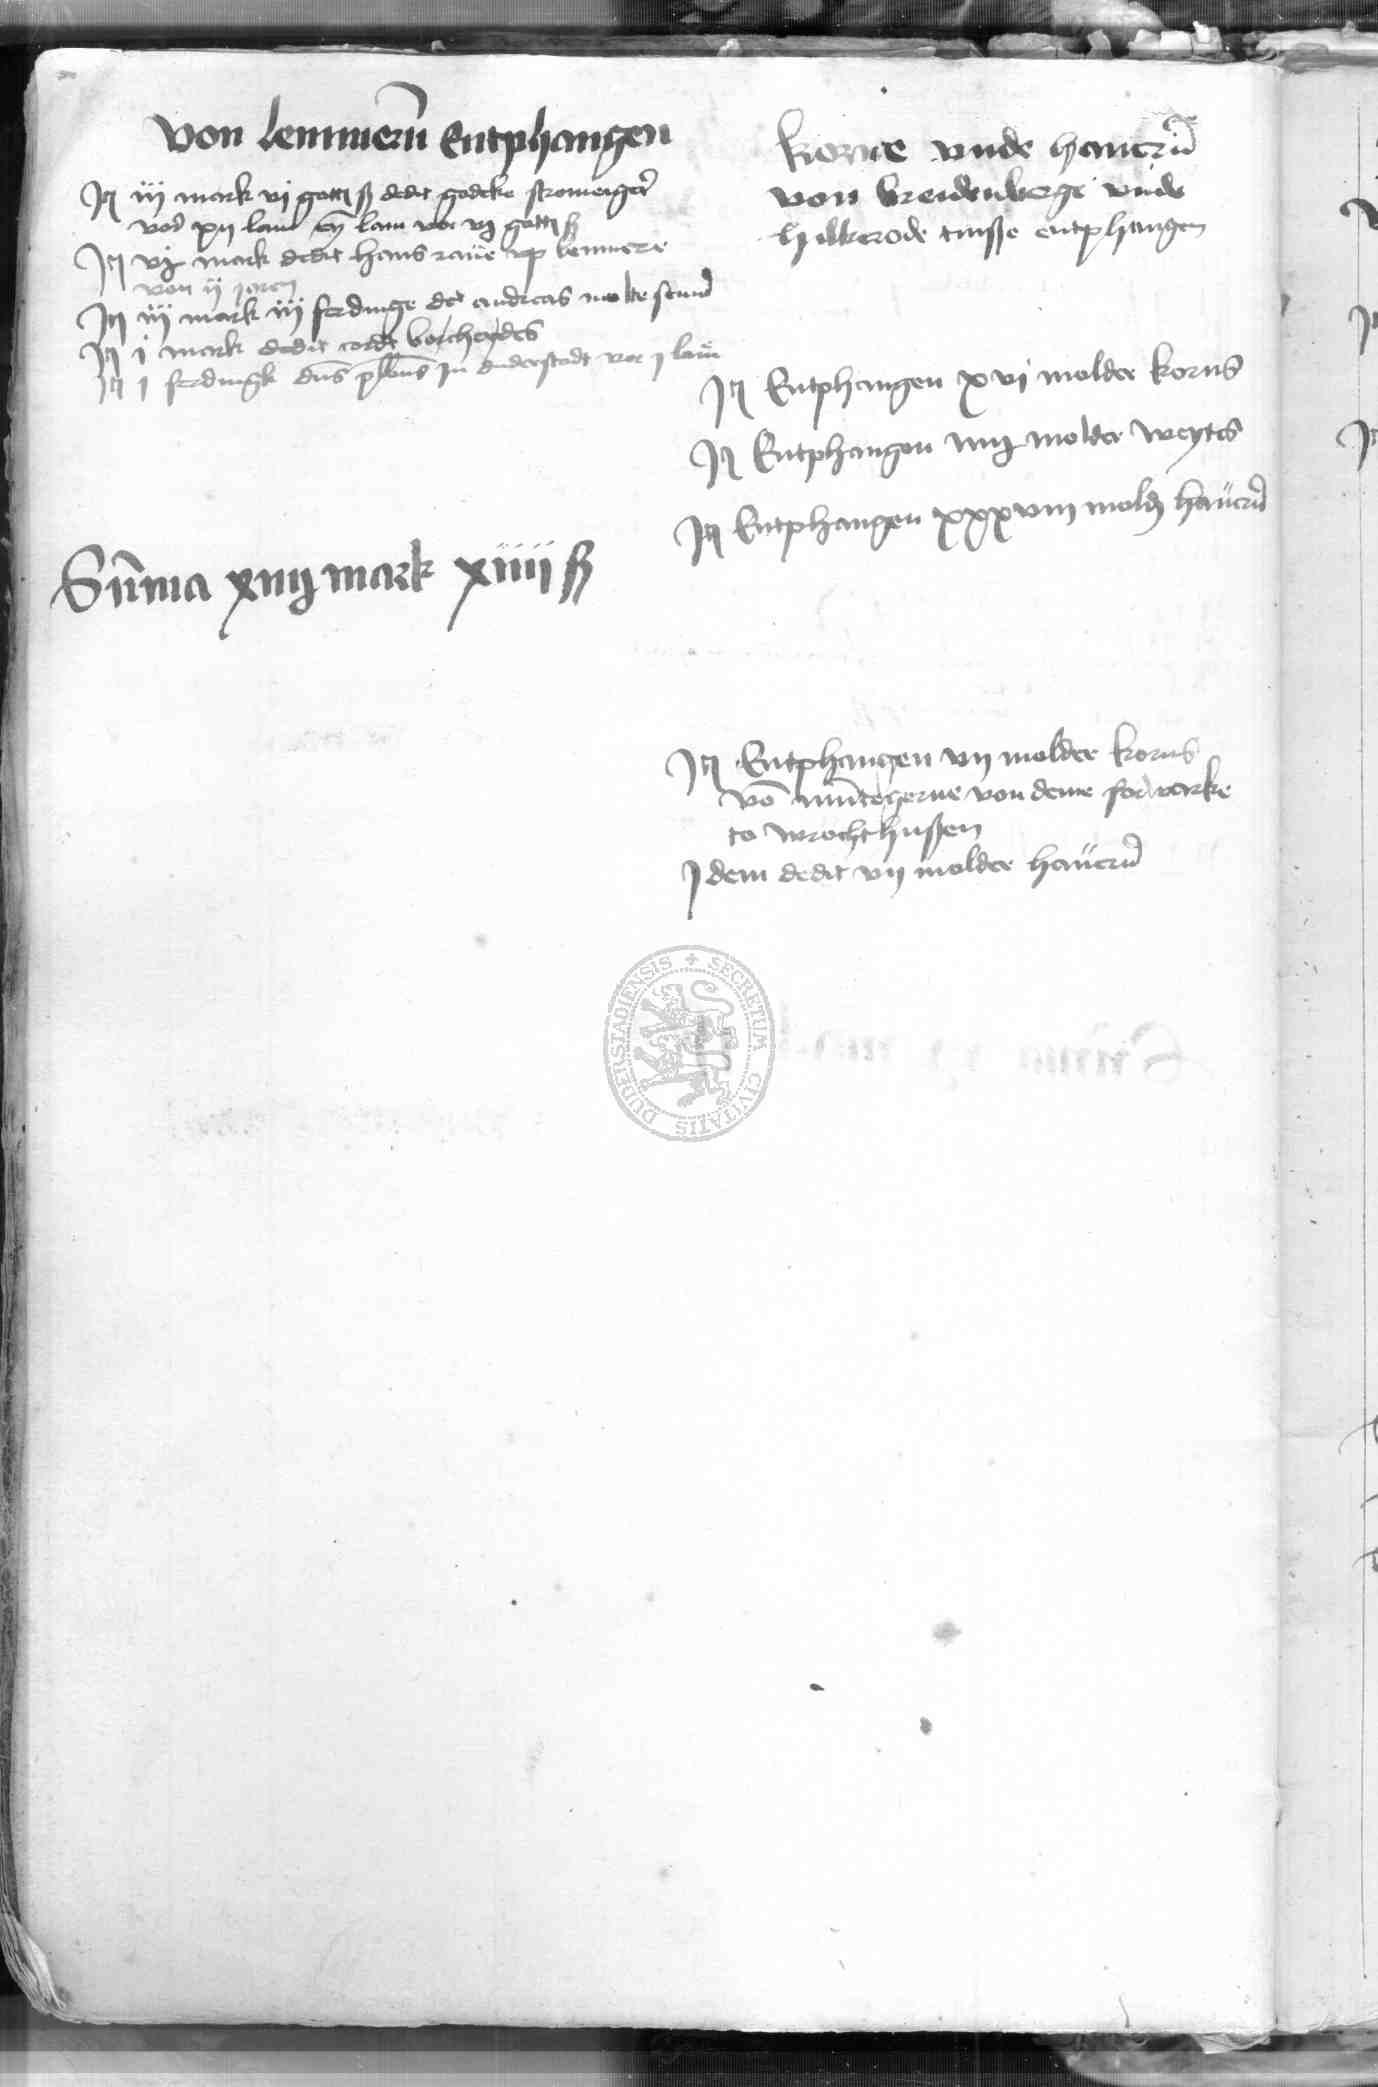 von lemmern Entphangen
It iij mark vj gott ß dedit godeke stromeiger
vor xij lam eyn lam vor vj gott ß
It vj mark dedit hans raue vp lemmere
von ij jaren
It iij mark iij ferdinge dt andreas
It j mark dedit cordt borcherdes
It j ferdingk dns plbns In duderstadt vor j lam
Suma xiiij mark xiiij ß
korne vnde hauern
von breidenberge vnde
hilkerode tinsse entphangen
It Entphangen xvj molder korns
It Entphangen iiij molder weytes
It Entphangen xxxviij mold hauern
It Entphangen vij molder korns
vo von deme forwarke
to wrochthussen
Idem dedit vij molder hauern
SECRETUM CIVITATIS DUDERSTADIENSIS